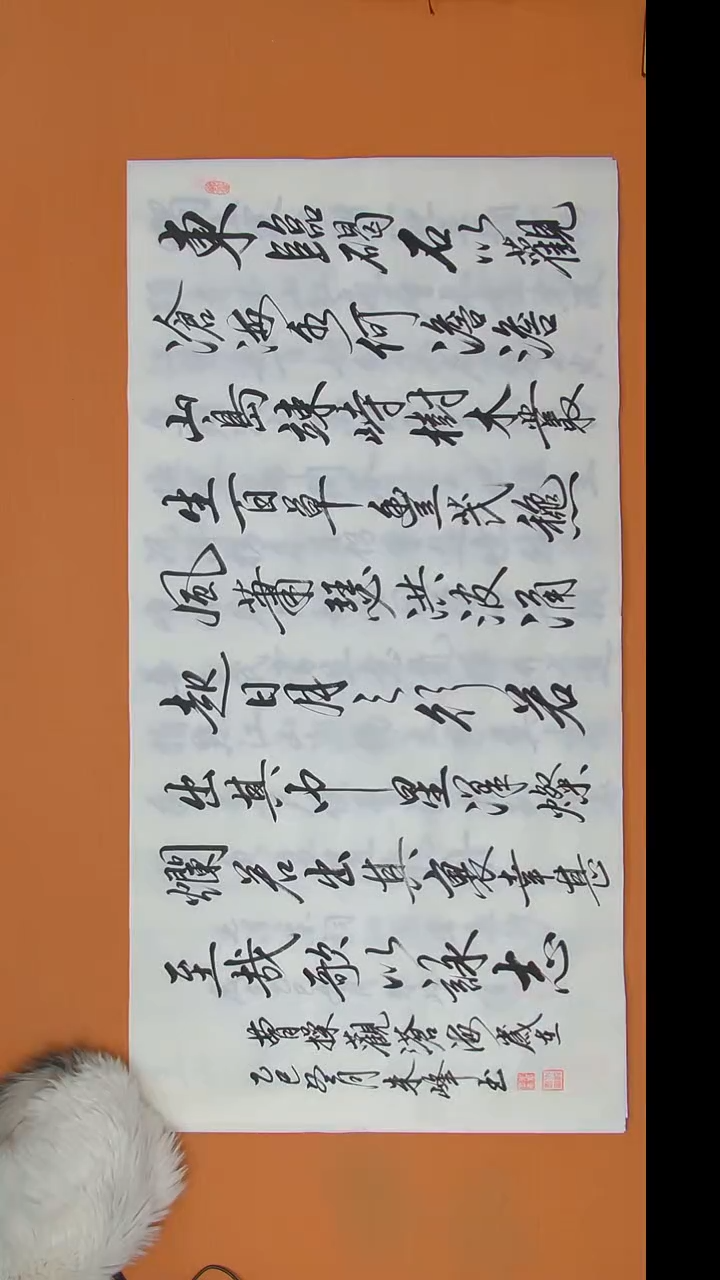 東臨碣石以觀
滄海水何澹澹
山島竦峙樹木叢
生百草豐茂穐
風蕭瑟洪波涌
起日月之行若
出其中星漢燦
爛若出其裏幸甚
至哉歌以詠志
曹操觀滄海歲在
乙巳月朱峰書